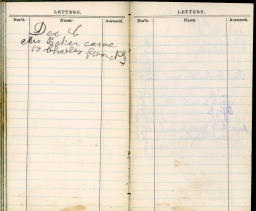 LETTERS.
Rec'd. Name. Answered.
Dec 6
Mrs. Baker came
to Charles from
LETTERS.
Rec'd. Name. Answered.